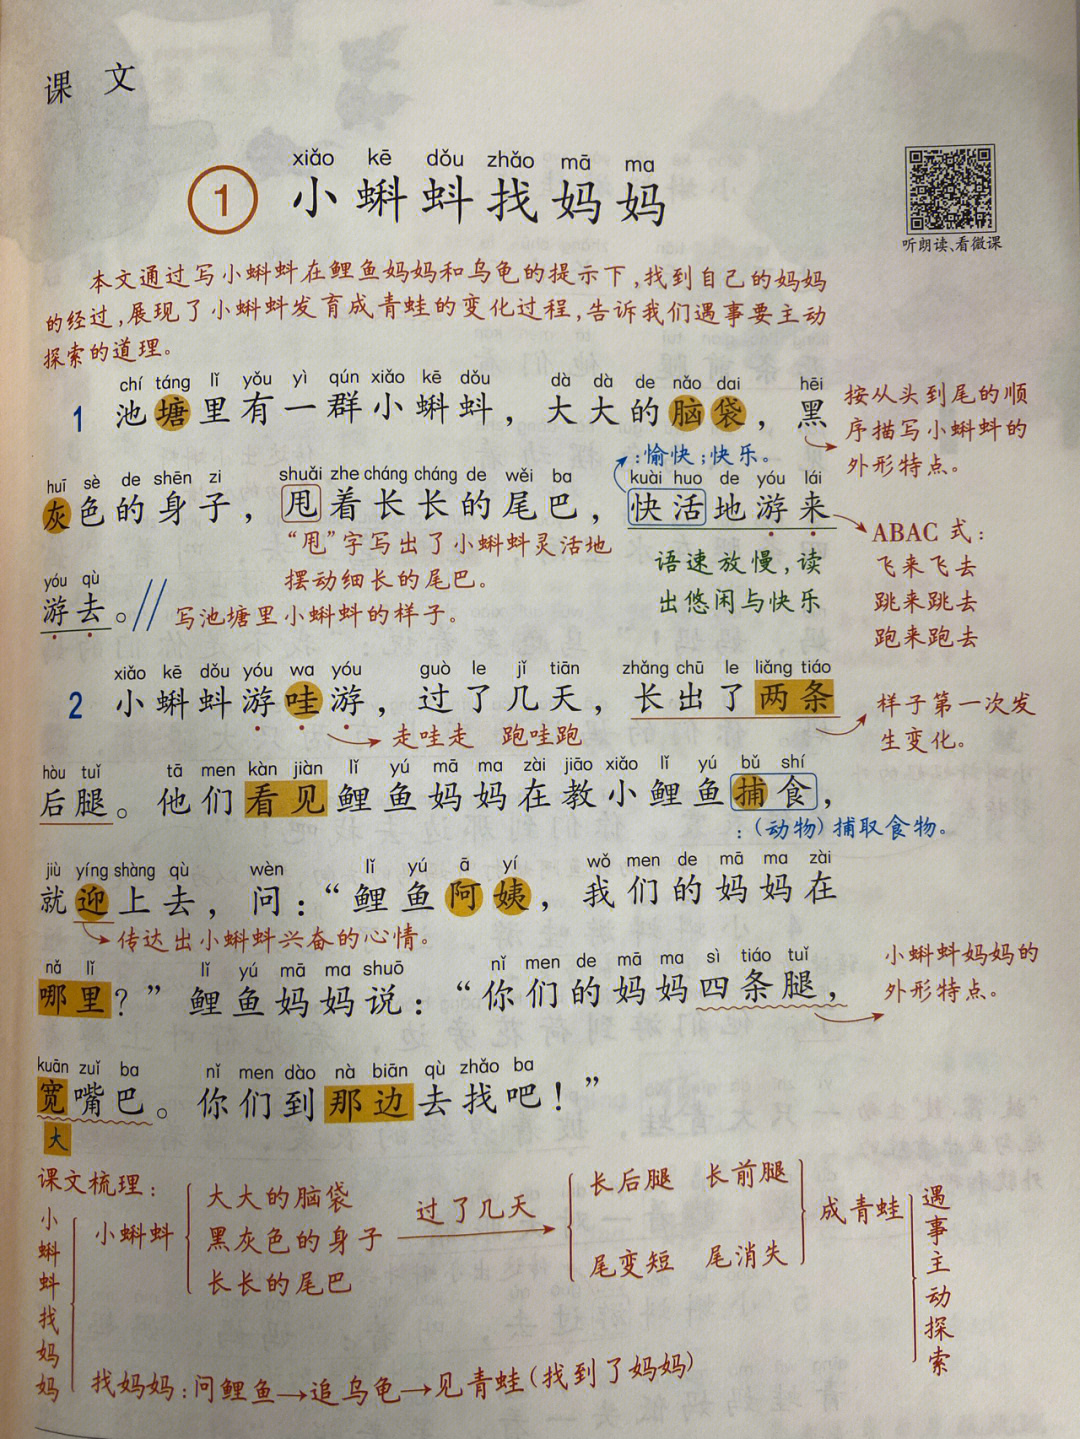 课 文
xiǎo kē dǒu zhǎo mā ma
1 小蝌蚪找妈妈
听朗读、看微课
本文通过写小蝌蚪在鲤鱼妈妈和乌龟的提示下，找到自己的妈妈
的经过，展现了小蝌蚪发育成青蛙的变化过程，告诉我们遇事要主动
探索的道理。
chí táng lǐ yǒu yì qún xiǎo kē dǒu dà dà de nǎo dai hēi
1 池塘里有一群小蝌蚪，大大的脑袋，黑
按从头到尾的顺
序描写小蝌蚪的
外形特点。
：愉快；快乐。
huī sè de shēn zi shuǎi zhe cháng cháng de wěi ba kuài huo de yóu lái
灰色的身子，甩着长长的尾巴，快活地游来
“甩”字写出了小蝌蚪灵活地
摆动细长的尾巴。
语速放慢，读
出悠闲与快乐
ABAC 式：
飞来飞去
跳来跳去
跑来跑去
yóu qù
游去。
写池塘里小蝌蚪的样子。
xiǎo kē dǒu yóu wa yóu guò le jǐ tiān zhǎng chū le liǎng tiáo
2 小蝌蚪游哇游，过了几天，长出了两条
走哇走 跑哇跑
样子第一次发
生变化。
hòu tuǐ tā men kàn jiàn lǐ yú mā ma zài jiāo xiǎo lǐ yú bǔ shí
后腿。他们看见鲤鱼妈妈在教小鲤鱼捕食，
：（动物）捕取食物。
jiù yíng shàng qù wèn lǐ yú ā yí wǒ men de mā ma zài
就迎上去，问：“鲤鱼阿姨，我们的妈妈在
传达出小蝌蚪兴奋的心情。
nǎ lǐ lǐ yú mā ma shuō nǐ men de mā ma sì tiáo tuǐ
哪里？”鲤鱼妈妈说：“你们的妈妈四条腿，
小蝌蚪妈妈的
外形特点。
kuān zuǐ ba nǐ men dào nà biān qù zhǎo ba
宽嘴巴。你们到那边去找吧！”
大
课文梳理：
小蝌蚪找妈妈
小蝌蚪
大大的脑袋
黑灰色的身子
长长的尾巴
过了几天
长后腿 长前腿
尾变短 尾消失
成青蛙
遇事主动探索
找妈妈：问鲤鱼→追乌龟→见青蛙（找到了妈妈）